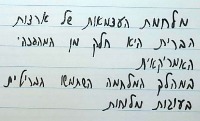 מלחמת העצמאות של ארצות
הברית היא חלק מן המהפכה
האמריקאית
במהלך המלחמה השתמשו הבריטים
בעיקר מלוחות